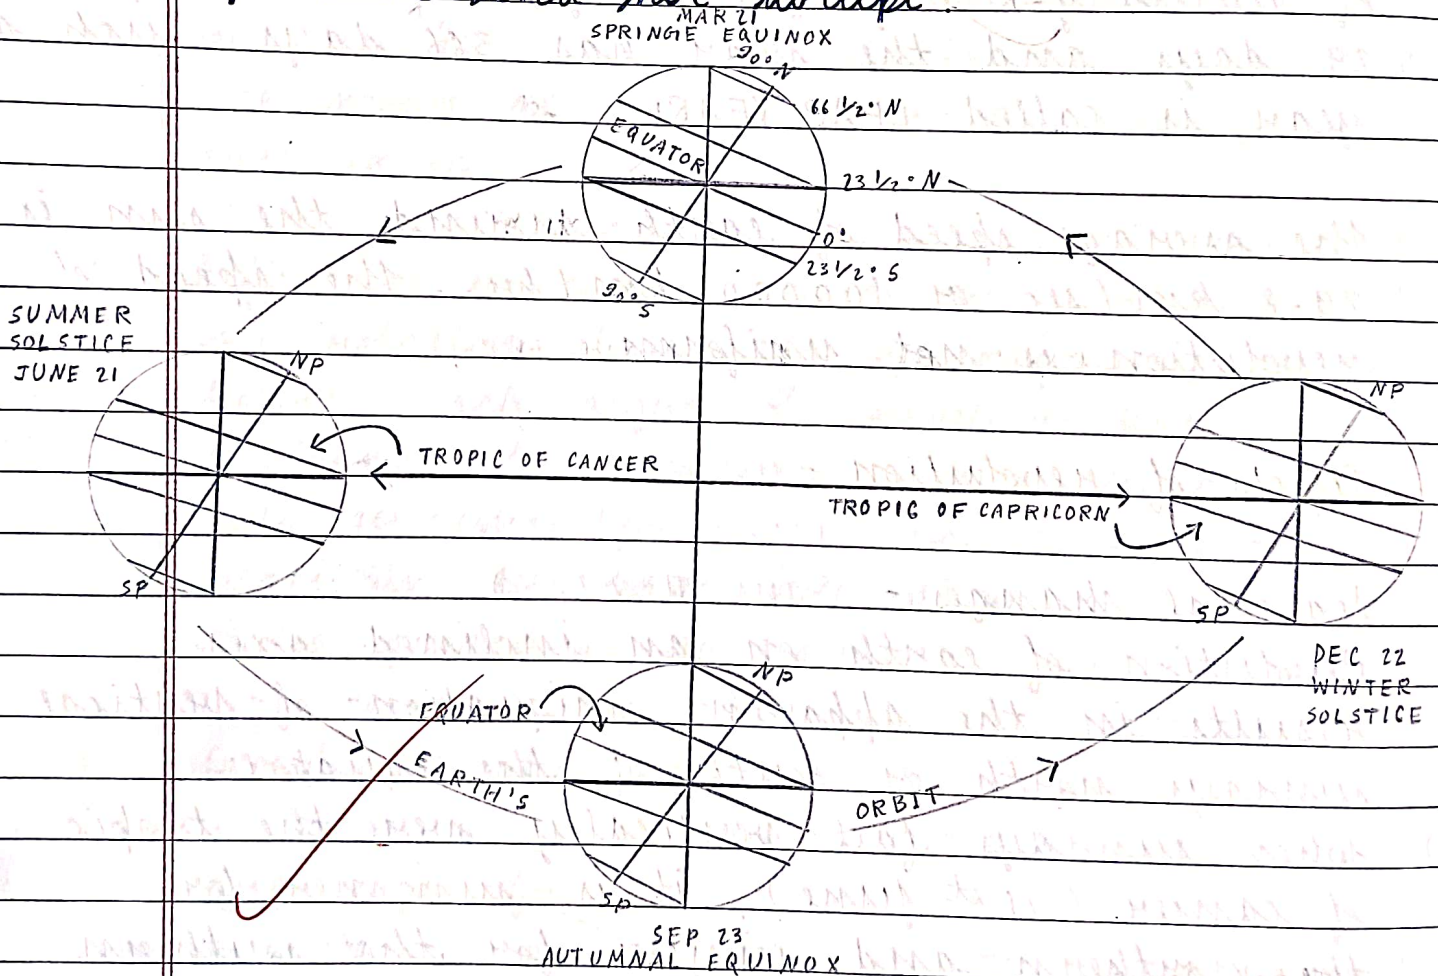 MAR 21
SPRINGIE EQUINOX
90° N
66 1/2° N
EQUATOR
23 1/2° N
0°
23 1/2° S
90° S
SUMMER
SOLSTICE
JUNE 21
NP
NP
TROPIC OF CANCER
TROPIC OF CAPRICORN
SP
SP
DEC 22
WINTER
SOLSTICE
NP
EQUATOR
EARTH'S
ORBIT
SP
SEP 23
AUTUMNAL EQUINOX